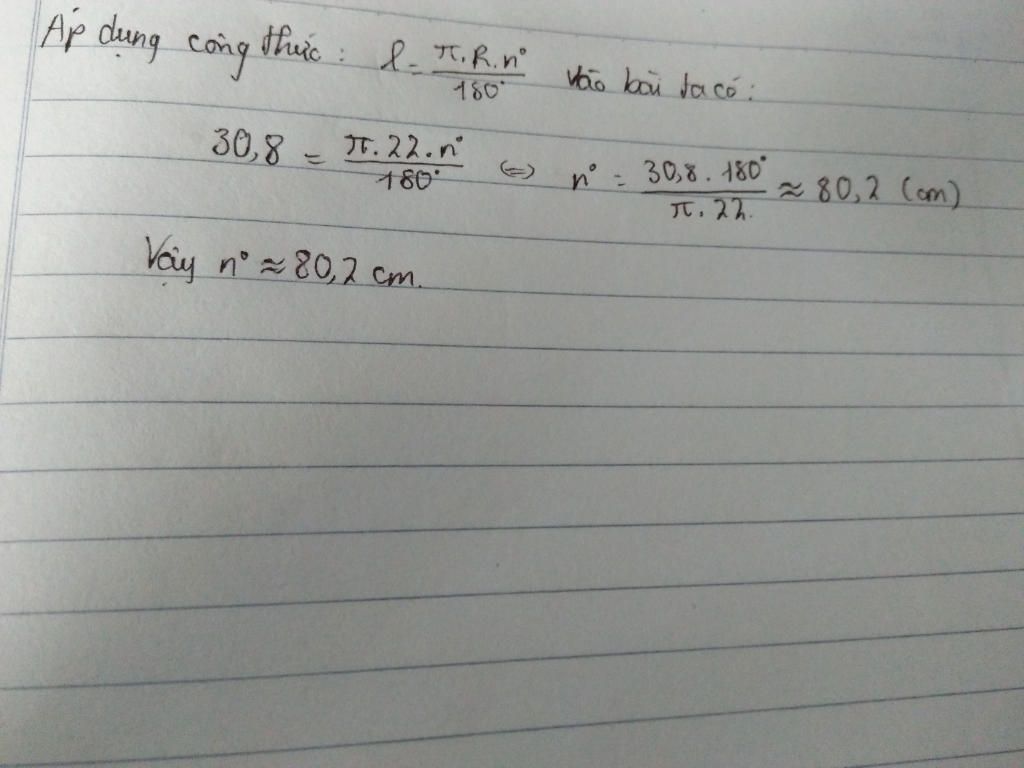 Áp dụng công thức: l = π.R.n° / 180° vào bài ta có:
30,8 = π.22.n° / 180° <=> n° = 30,8.180° / π.22. ≈ 80,2 (cm)
Vậy n° ≈ 80,2 cm.